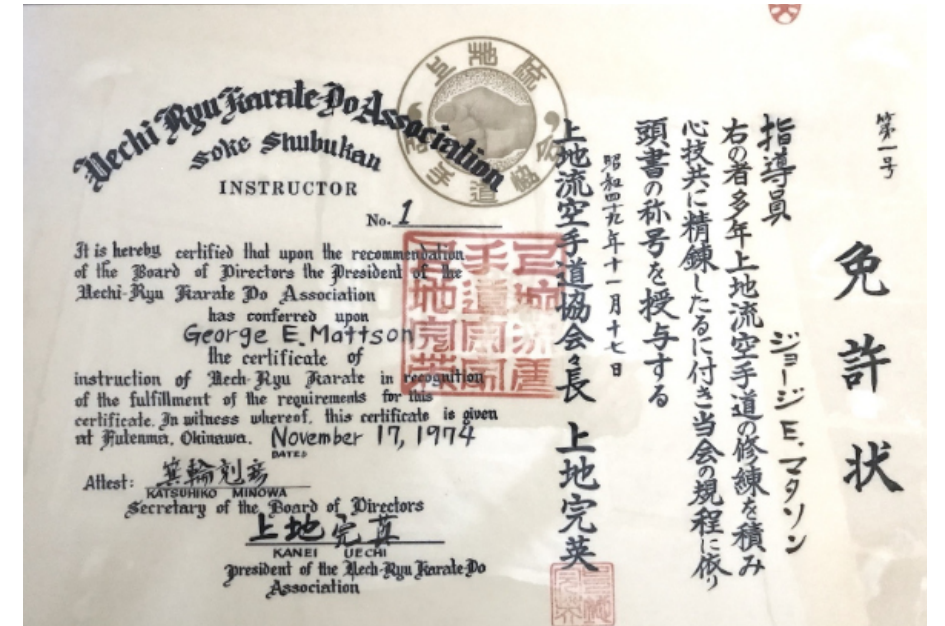 Uechi Ryu Karate-Do Association
Soke Shubukan
INSTRUCTOR
No. 1
It is hereby certified that upon the recommendation
of the Board of Directors the President of the
Uechi-Ryu Karate Do Association
has conferred upon
George E. Mattson
the certificate of
instruction of Uech-Ryu Karate in recognition
of the fulfillment of the requirements for this
certificate. In witness whereof, this certificate is given
at Futenma, Okinawa. November 17, 1974
DATED
Attest: 箕輪剋彦
KATSUHIKO MINOWA
Secretary of the Board of Directors
上地完英
KANEI UECHI
president of the Uech-Ryu Karate-Do
Association
上地流
空手道
協会
第一号
免許状
ジョージ E. マタソン
指導員
右の者多年上地流空手道の修練を積み
心技共に精錬したるに付き当会の規程に依り
頭書の称号を授与する
昭和四十九年十一月十七日
上地流空手道協会々長 上地完英